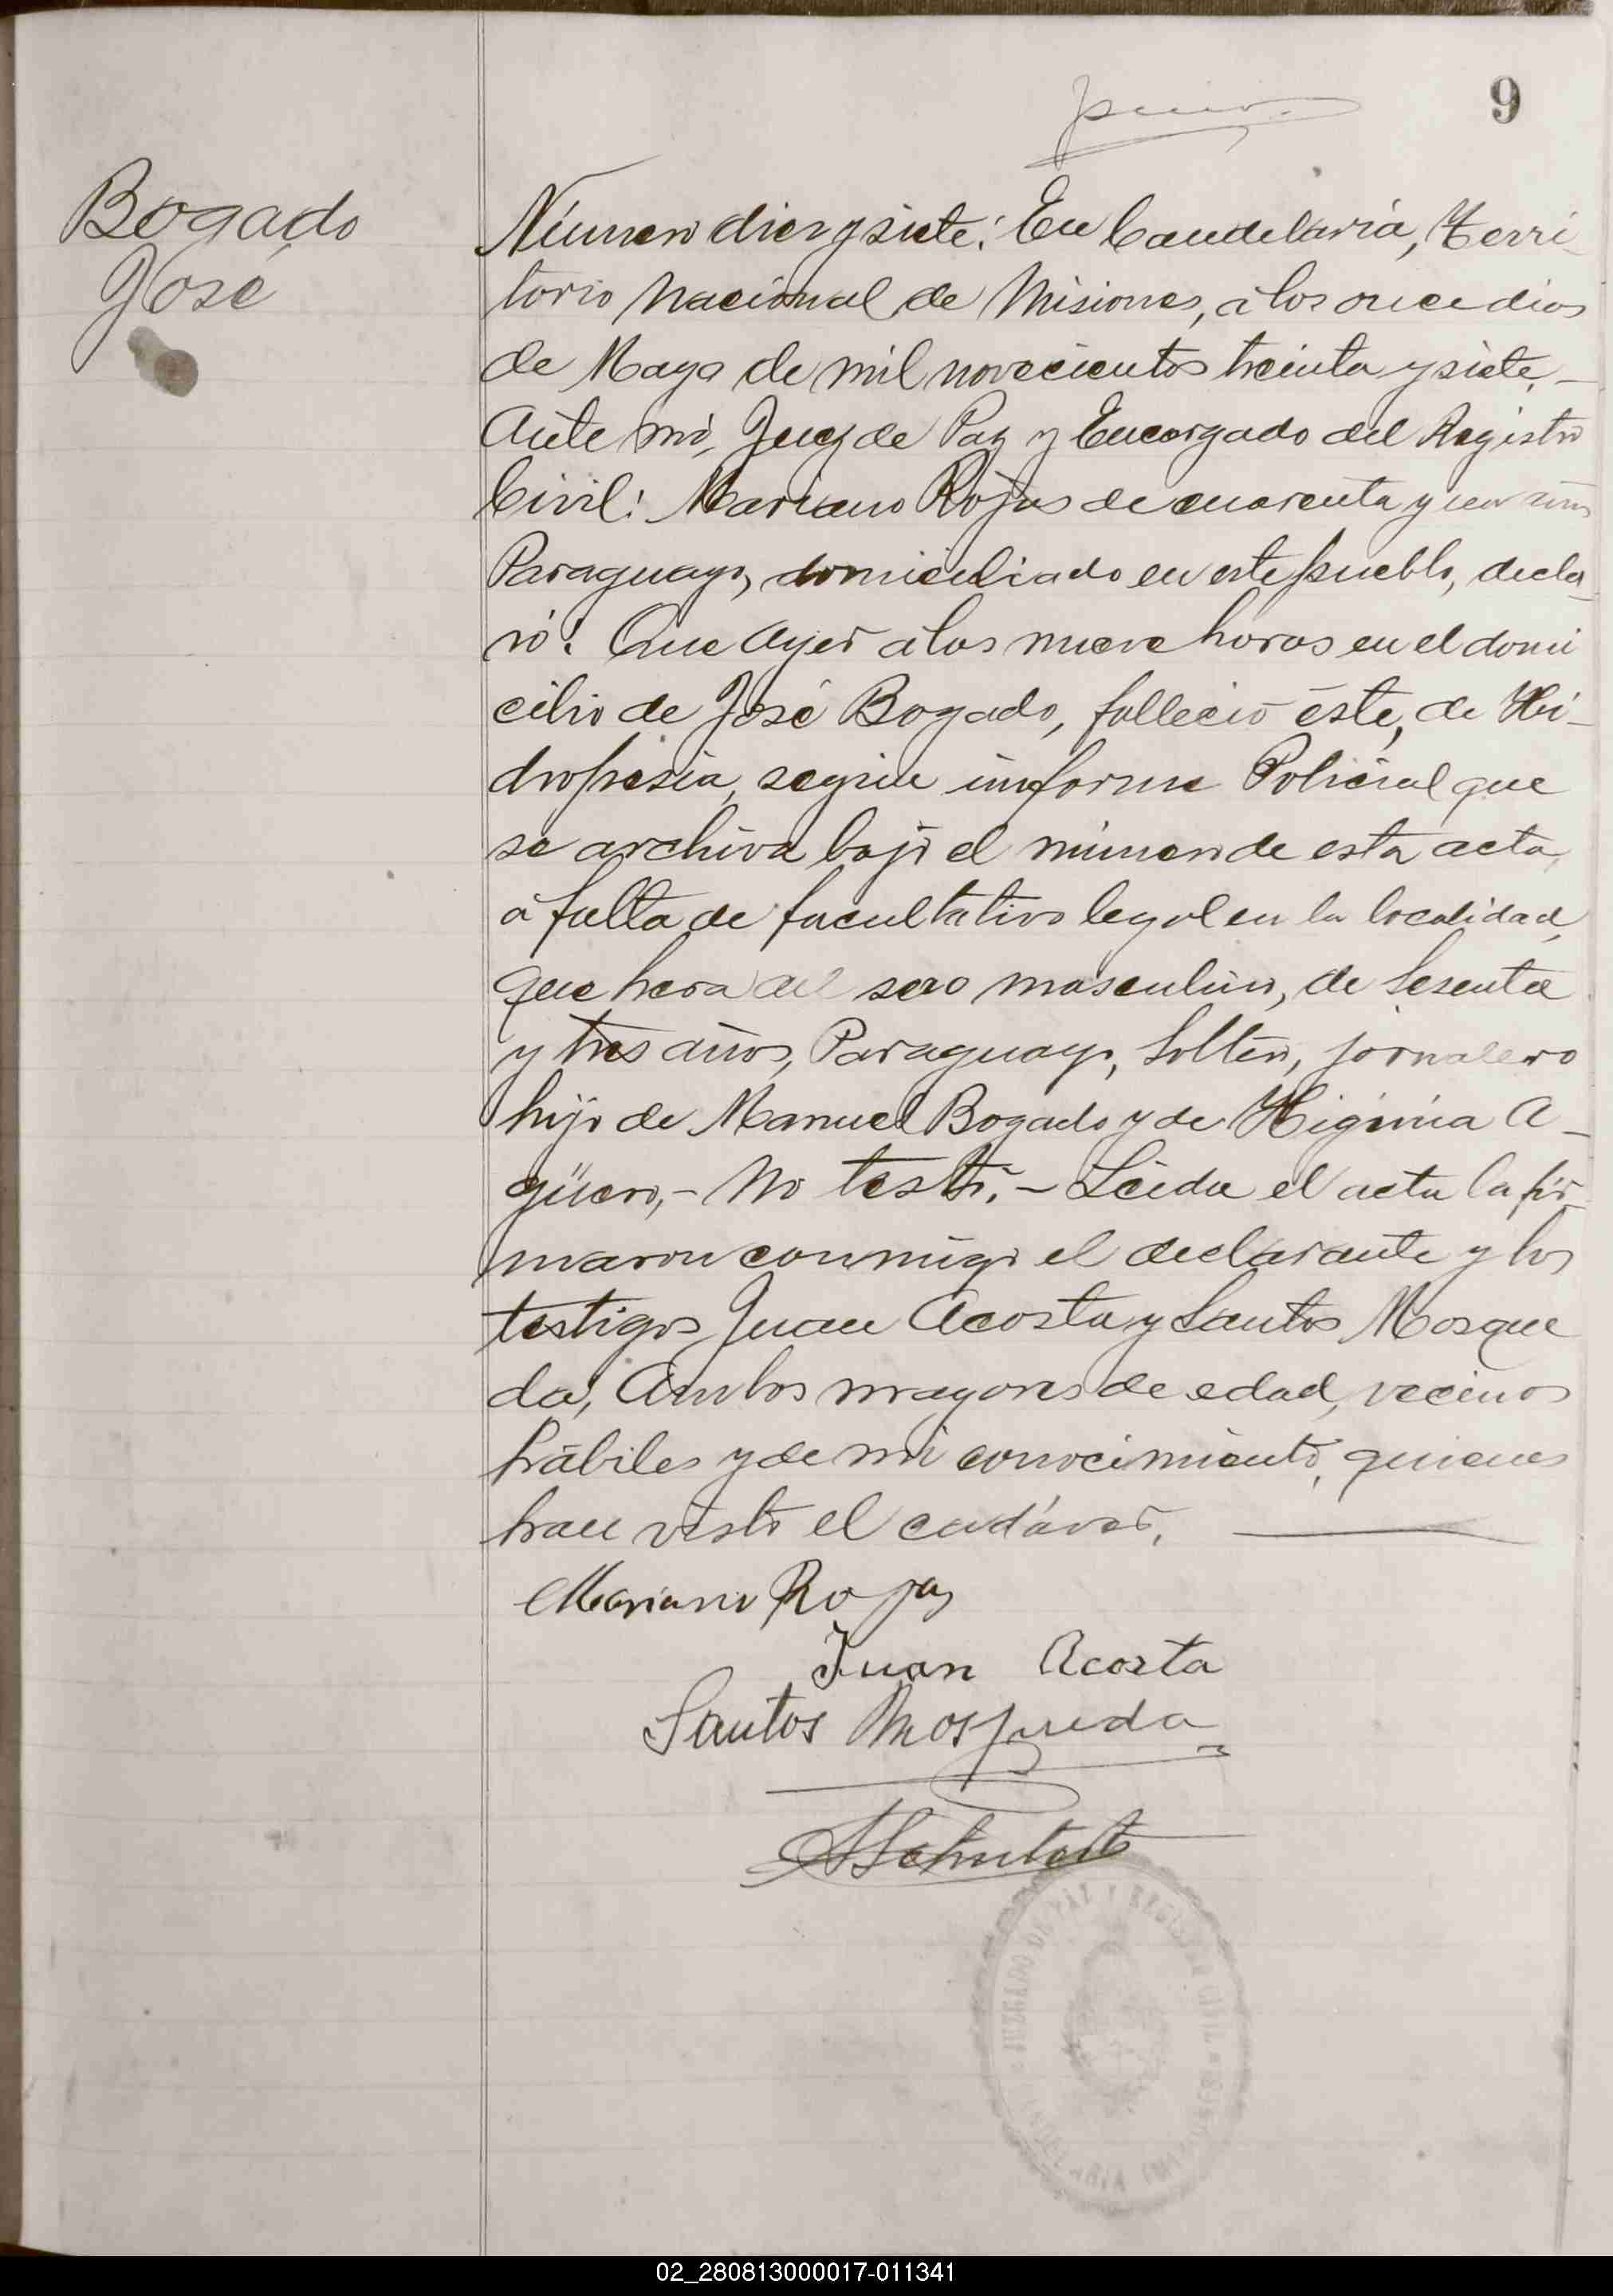 9
Bogado
José
Número diez y siete: En Candelaria, Terri
torio Nacional de Misiones, á los once dias
de Mayo de mil novecientos treinta y siete.—
Ante mi, Juez de Paz y Encargado del Registro
Civil: Mariano Rojas de cuarenta y un años
Paraguayo, domiciliado en este pueblo, decla-
ró: Que Ayer a las nueve horas en el domi
cilio de José Bogado, falleció éste, de Hi-
dropesia, según informe Policial que
se archiva bajo el número de esta acta,
á falta de facultativo legal en la localidad,
que hera del sexo masculino, de sesenta
y tres años, Paraguayo, soltero, jornalero
hijo de Manuel Bogado y de Higinia A-
güero,- No testó.- Leida el acta la fir-
maron conmigo el declarante y los
testigos Juan Acosta y Santos Mosque
da, Ambos mayores de edad, vecinos
hábiles y de mi conocimiento, quienes
han visto el cadáver.
Mariano Rojas
Juan Acosta
Santos Mosqueda
JUZGADO DE PAZ Y REGISTRO CIVIL
02_280813000017-011341